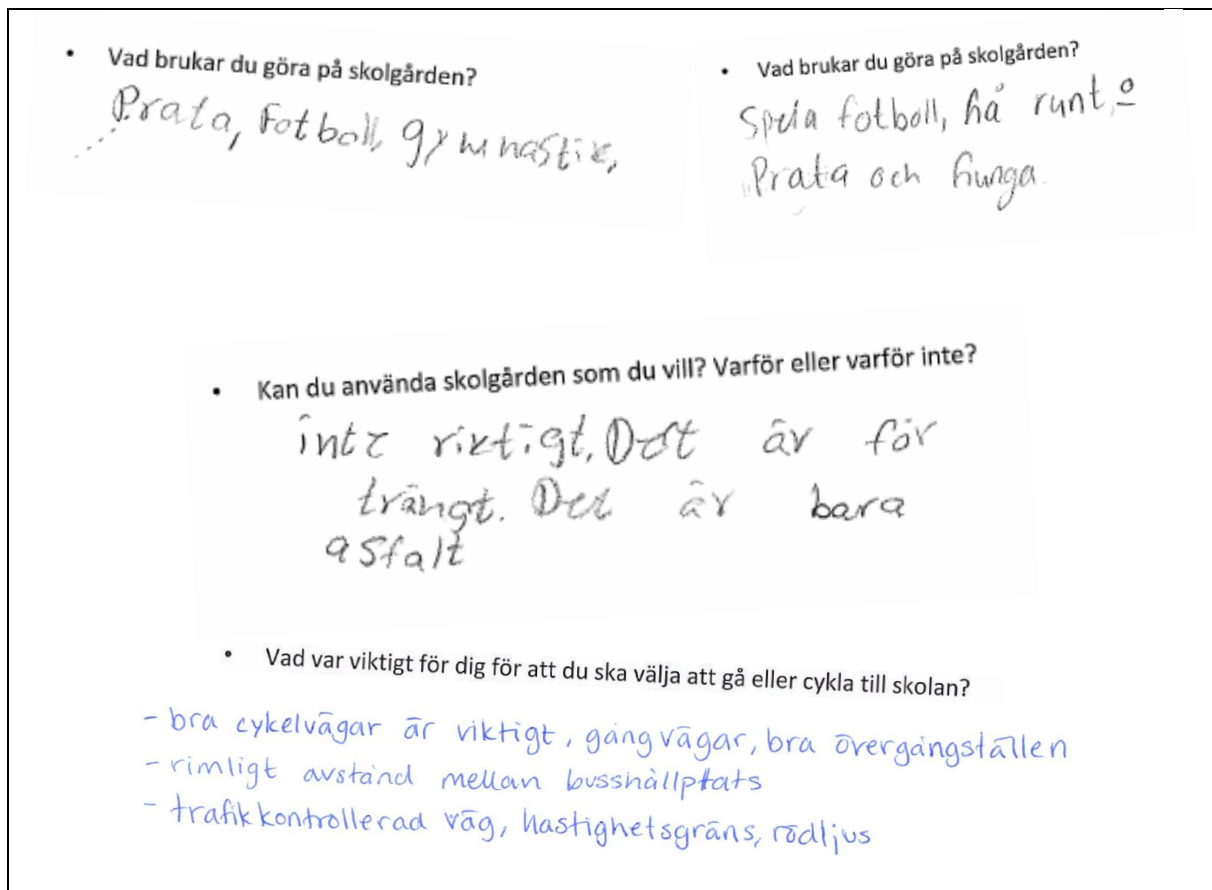 • Vad brukar du göra på skolgården?
Prata, Fotboll, gymnastik,
• Vad brukar du göra på skolgården?
Spela fotboll, gå runt,
Prata och gunga.
• Kan du använda skolgården som du vill? Varför eller varför inte?
inte riktigt. Det är för
trängt. Det är bara
asfalt
• Vad var viktigt för dig för att du ska välja att gå eller cykla till skolan?
- bra cykelvägar är viktigt, gångvägar, bra övergångställen
- rimligt avstånd mellan busshållplats
- trafikkontrollerad väg, hastighetsgräns, rödljus